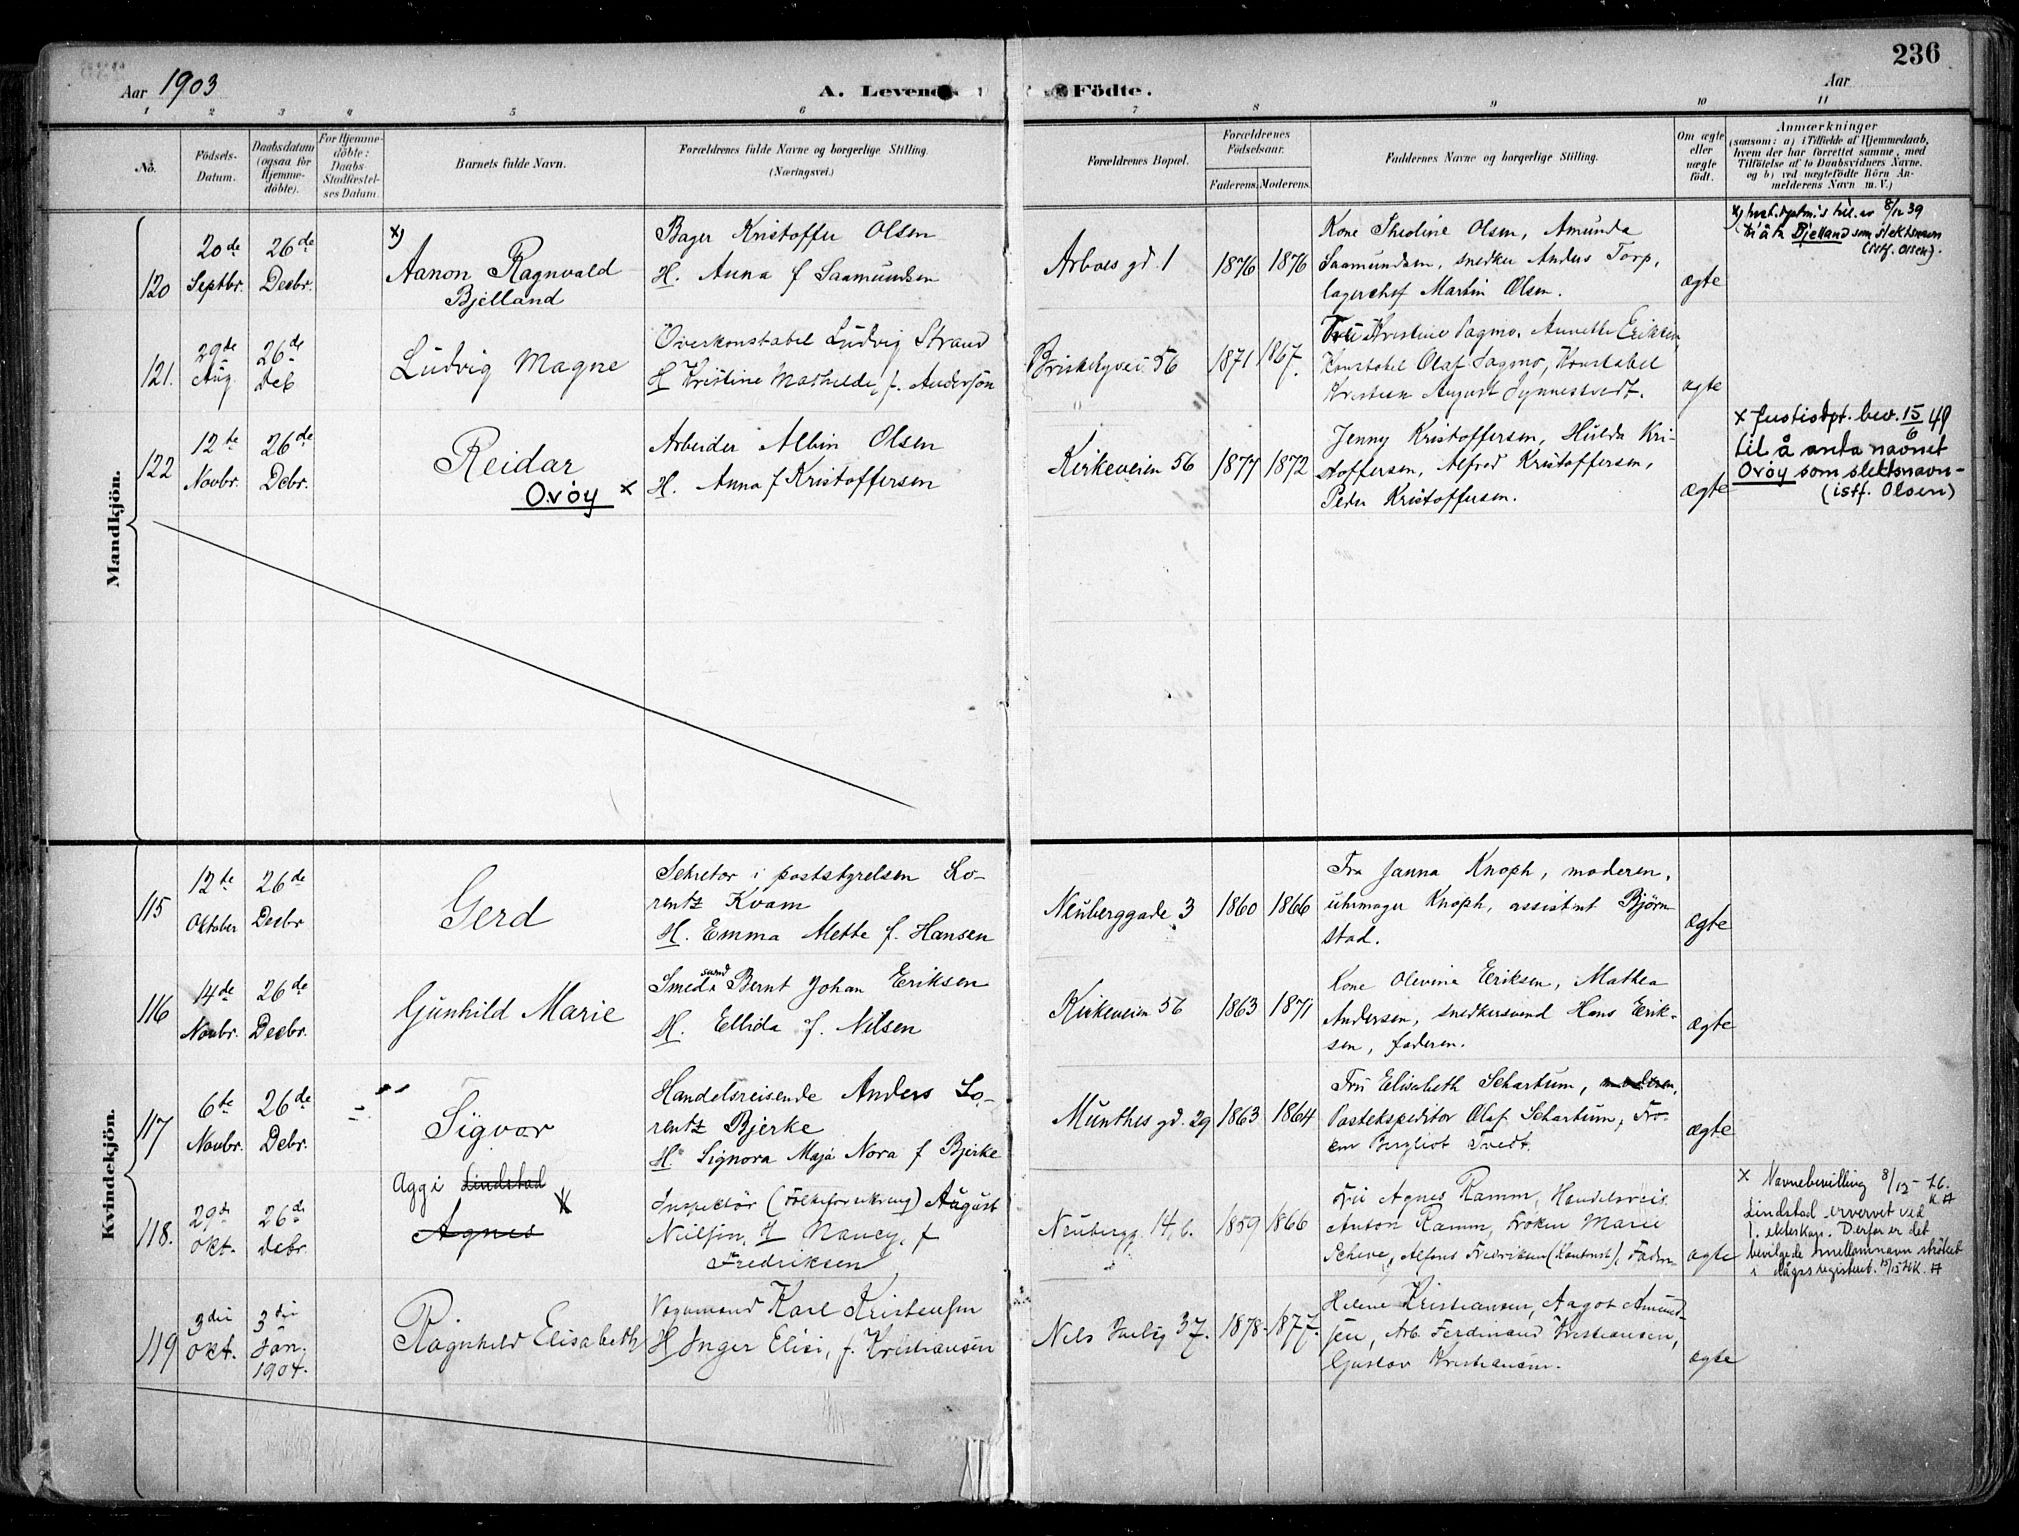 236
Aar 1903
A. Levende Födte.
Aar
1 2 3 4 5 6 7 8 9 10 11
No.
Födsels-
Datum.
Daabsdatum
(ogsaa for
Hjemme-
döbte).
For Hjemme-
döbte:
Daabs
Stadfæstel-
ses Datum
Barnets fulde Navn.
Forældrenes fulde Navne og borgerlige Stilling.
(Næringsvei.)
Forældrenes Bopæl.
Forældrenes
Födselsaar.
Faderens.
Moderens.
Faddernes Navne og borgerlige Stilling.
Om ægte
eller
uægte
födt.
Anmærkninger
(saasom: a) i Tilfælde af Hjemmedaab,
hvem der har forrettet samme, med
Tilföielse af to Daabsvidners Navne.
og b) ved uægtefödte Börn An-
melderens Navn m. V.)
Mandkjön.
120
20de
Septbr.
26de
Decbr.
x)
Aanon Ragnvald
Bjelland
Bager Kristoffer Olsen
H. Anna f Saamundsen
Arboes gd. 1
1876
1876
Kone Theoline Olsen, Amunda
Saamundsen, snedker Anders Torp,
lagerchef Martin Olsen.
ægte
8/12 39
til å ta Bjelland som slektsnavn
(istf. Olsen).
121.
29de
Aug.
26de
Deb
Ludvig Magne
Overkonstabel Ludvig Strand
H Kristine Mathilde, f. Anderson
Briskebyvei 56
1871
1867.
Kristine Sagmo, Annette Eriksen
Konstabel Olaf Sagmo, Konstabel
Kristian August
ægte
122
12te
Novbr.
26de
Debr.
Reidar
Ovöy x
Arbeider Albin Olsen
H. Anna f Kristoffersen
Kirkeveien 56
1877
1872
Jenny Kristoffersen, Hulda Kri-
stoffersen, Alfred Kristoffersen,
Peder Kristoffersen.
ægte
x Justisdpt. bev. 15/6 49
til å anta navnet
Ovöy som slektsnavn-
(istf. Olsen)
Kvindekjön.
115
12te
Oktober
26de
Decbr
Gerd
Sekretær i poststyrelsen Lo-
rentz Kvam
H. Emma Mette f. Hansen
Neuberggade 3
1860
1866
Fru Janna Knoph, moderen,
uhrmager Knoph, assistent Bjørn-
stad.
ægte
116
14de
Novbr.
26de
Decbr.
Gunhild Marie
Smedsvend Bernt Johan Eriksen
H. Ellida f. Nilsen
Kirkeveien 56
1863
1871
Kone Olevine Eriksen, Mathea
Andersen, snedkersvend Hans Erik-
sen, faderen.
ægte
117
6te
Novbr.
26de
Debr.
Sigvor
Handelsreisende Anders Lo-
rentz Bjerke
H. Signora Maja Nora f Bjerke
Munthes gd. 29
1863
1864
Fru Elisabeth Schartum, moderen,
Postekspeditør Olaf Schartum, Frø-
ken Bergliot Tvedt.
ægte
118.
29de
Okt.
26de
Debr.
Aggi Lindstad x
Agnes
Inspektør (Folkeforsikring) August
Neilson, H Nancy, f
Fredriksen
Neubergg 14, b.
1859
1866
Fru Agnes Ramm, Handelsreis.
Anton Ramm, Frøken Marie
Scheve, Alfons Fredriksen (Kontorist), Fader-
ægte
x Navnebevilling 8/12-26.
Lindstad ervervet ved
1. ekteskap. Derfor er det
bevilgede mellomnavn strøket
i dåpsregisteret.
119
3die
Okt.
3die
Jan.
1904.
Ragnhild Elisabeth
Vognmand Karl Kristensen
H Inger Elisi, f. Kristiansen
Nils Juelsg 37.
1878-
1877.
Helene Kristiansen, Aagot Amund-
sen, Arb. Ferdinand Kristiansen,
Gustav Kristiansen.
ægte